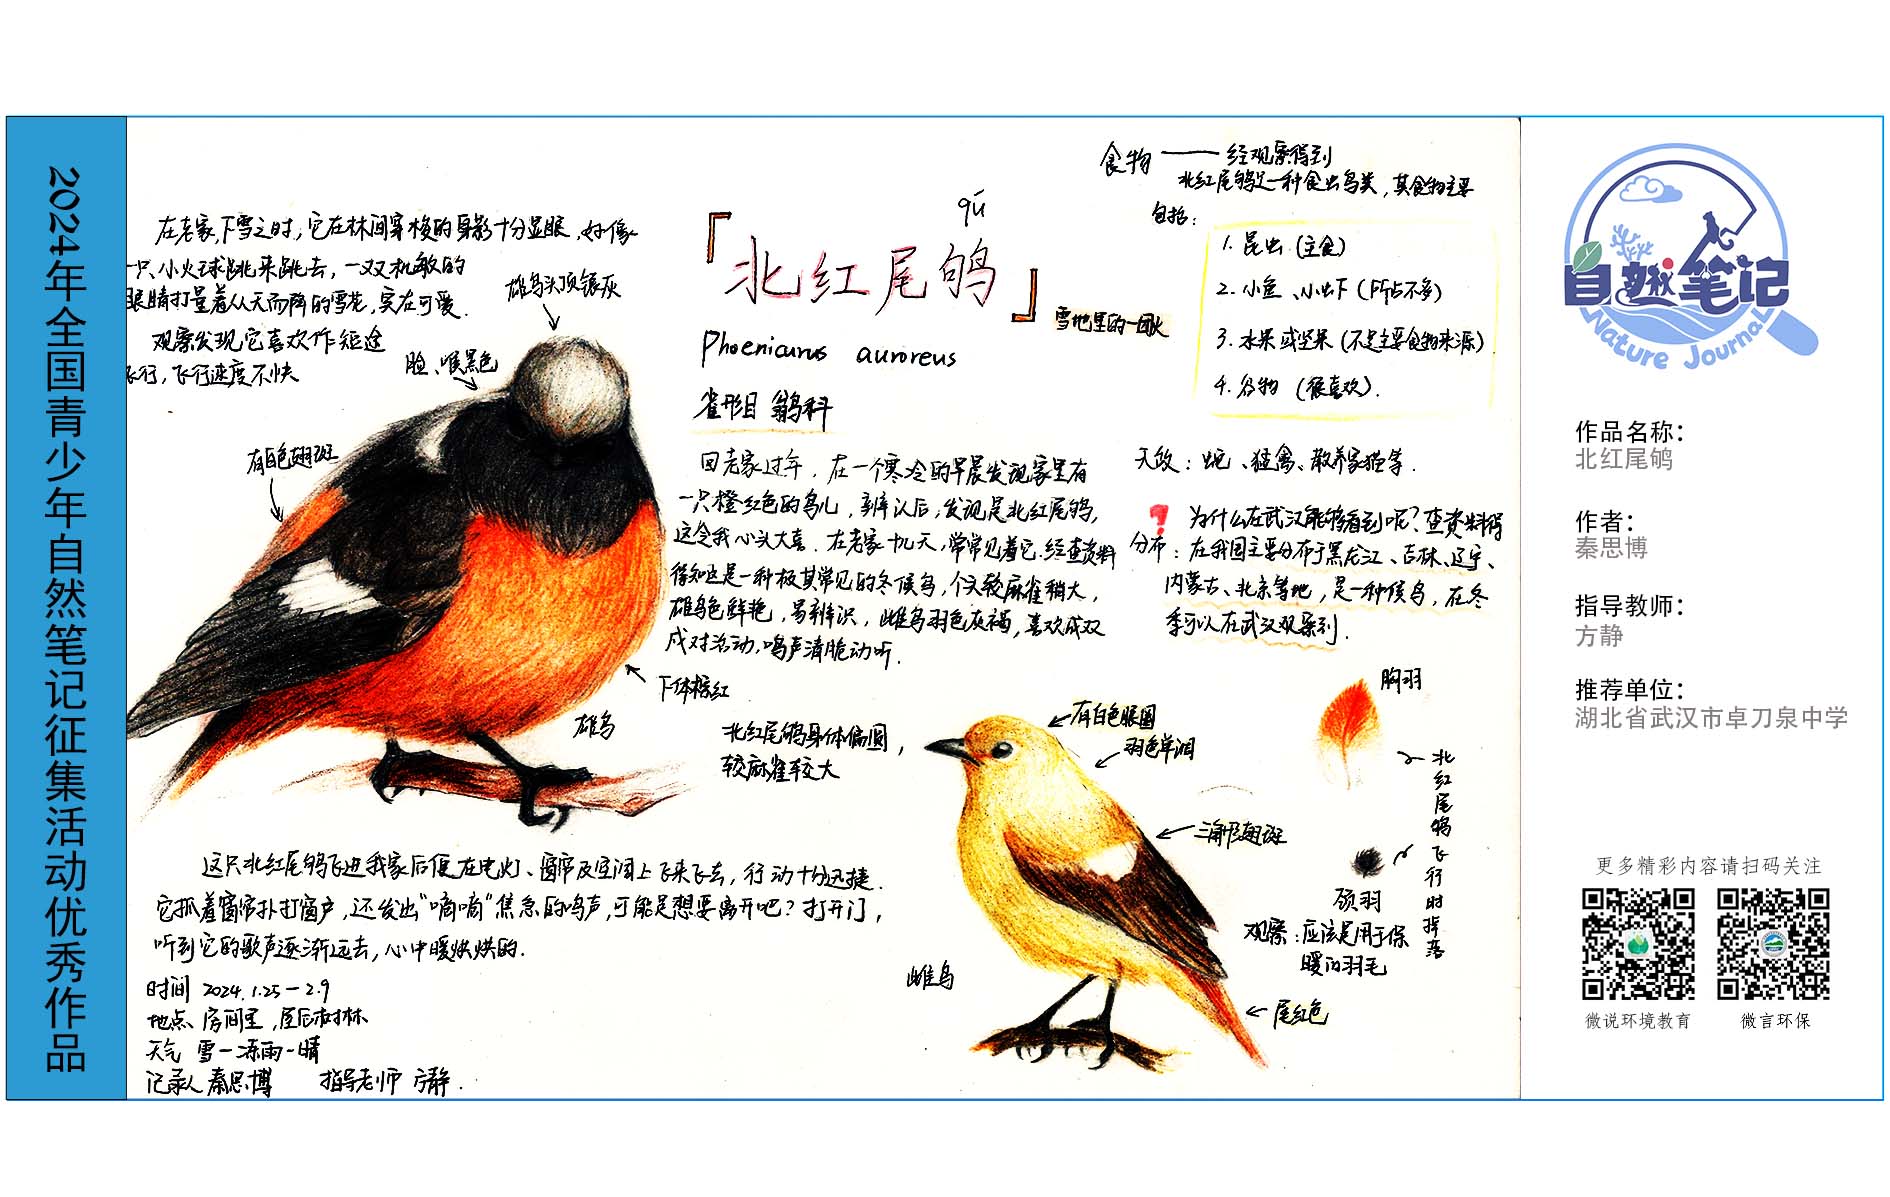 2024年全国青少年自然笔记征集活动优秀作品
在老家,下雪之时,它在林间穿梭的身影十分显眼,好像
一只小火球跳来跳去,一双机敏的
眼睛打量着从天而降的雪花,实在可爱.
观察发现它喜欢作短途
飞行,飞行速度不快
雄鸟头顶银灰
脸、喉黑色
有白色翅斑
下体棕红
雄鸟
qú
「北红尾鸲」
雪地里的一团火
Phoenicurus auroreus
雀形目 鹟科
回老家过年,在一个寒冷的早晨发现家里有
一只橙红色的鸟儿,辨认后,发现是北红尾鸲,
这令我心头大喜.在老家十几天,常常见着它.经查资料
得知这是一种极其常见的冬候鸟,个头较麻雀稍大,
雄鸟色鲜艳,易辨识,雌鸟羽色灰褐,喜欢成双
成对活动,鸣声清脆动听.
北红尾鸲身体偏圆,
较麻雀较大
食物——经观察得到
北红尾鸲是一种食虫鸟类,其食物主要
包括:
1.昆虫(主食)
2.小鱼、小虾(所占不多)
3.水果或坚果(不是主要食物来源)
4.谷物(很喜欢).
天敌:蛇、猛禽、散养家猫等.
? 为什么在武汉能够看到呢?查资料得
分布:在我国主要分布于黑龙江、吉林、辽宁、
内蒙古、北京等地,是一种候鸟,在冬
季可以在武汉观察到.
有白色眼圈
羽色单调
三角形翅斑
尾红色
雌鸟
胸羽
颈羽
北红尾鸲飞行时掉落
观察:应该是用于保
暖的羽毛
这只北红尾鸲飞进我家后便在电灯、窗帘及空调上飞来飞去,行动十分迅捷.
它抓着窗帘扑打窗户,还发出“嘀嘀”焦急的鸣声,可能是想要离开吧?打开门,
听到它的歌声逐渐远去,心中暖烘烘的.
时间 2024.1.25-2.9
地点 房间里,屋后树林
天气 雪-冻雨-晴
记录人 秦思博 指导老师 方静.
自然笔记
Nature Journal
作品名称:
北红尾鸲
作者:
秦思博
指导教师:
方静
推荐单位:
湖北省武汉市卓刀泉中学
更多精彩内容请扫码关注
微说环境教育
微言环保